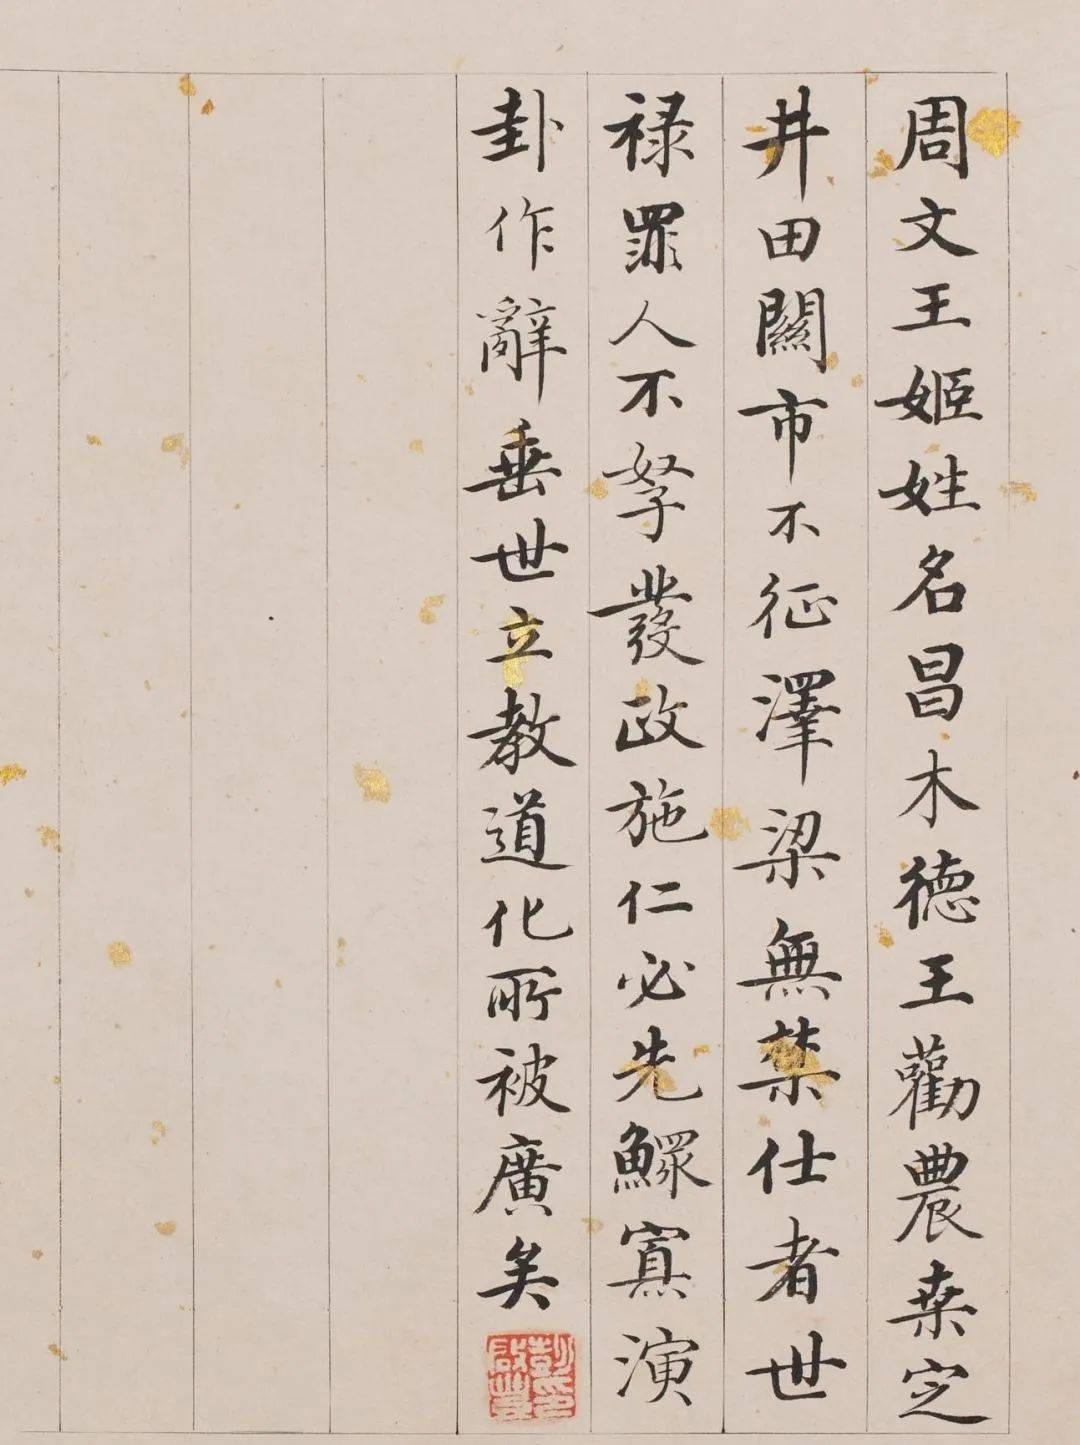 周文王姬姓名昌木德王勸農桒定
井田關市不征澤梁無禁仕者世
禄罪人不孥發政施仁必先鰥寡演
卦作辭垂世立教道化所被廣矣
彭印啟豐